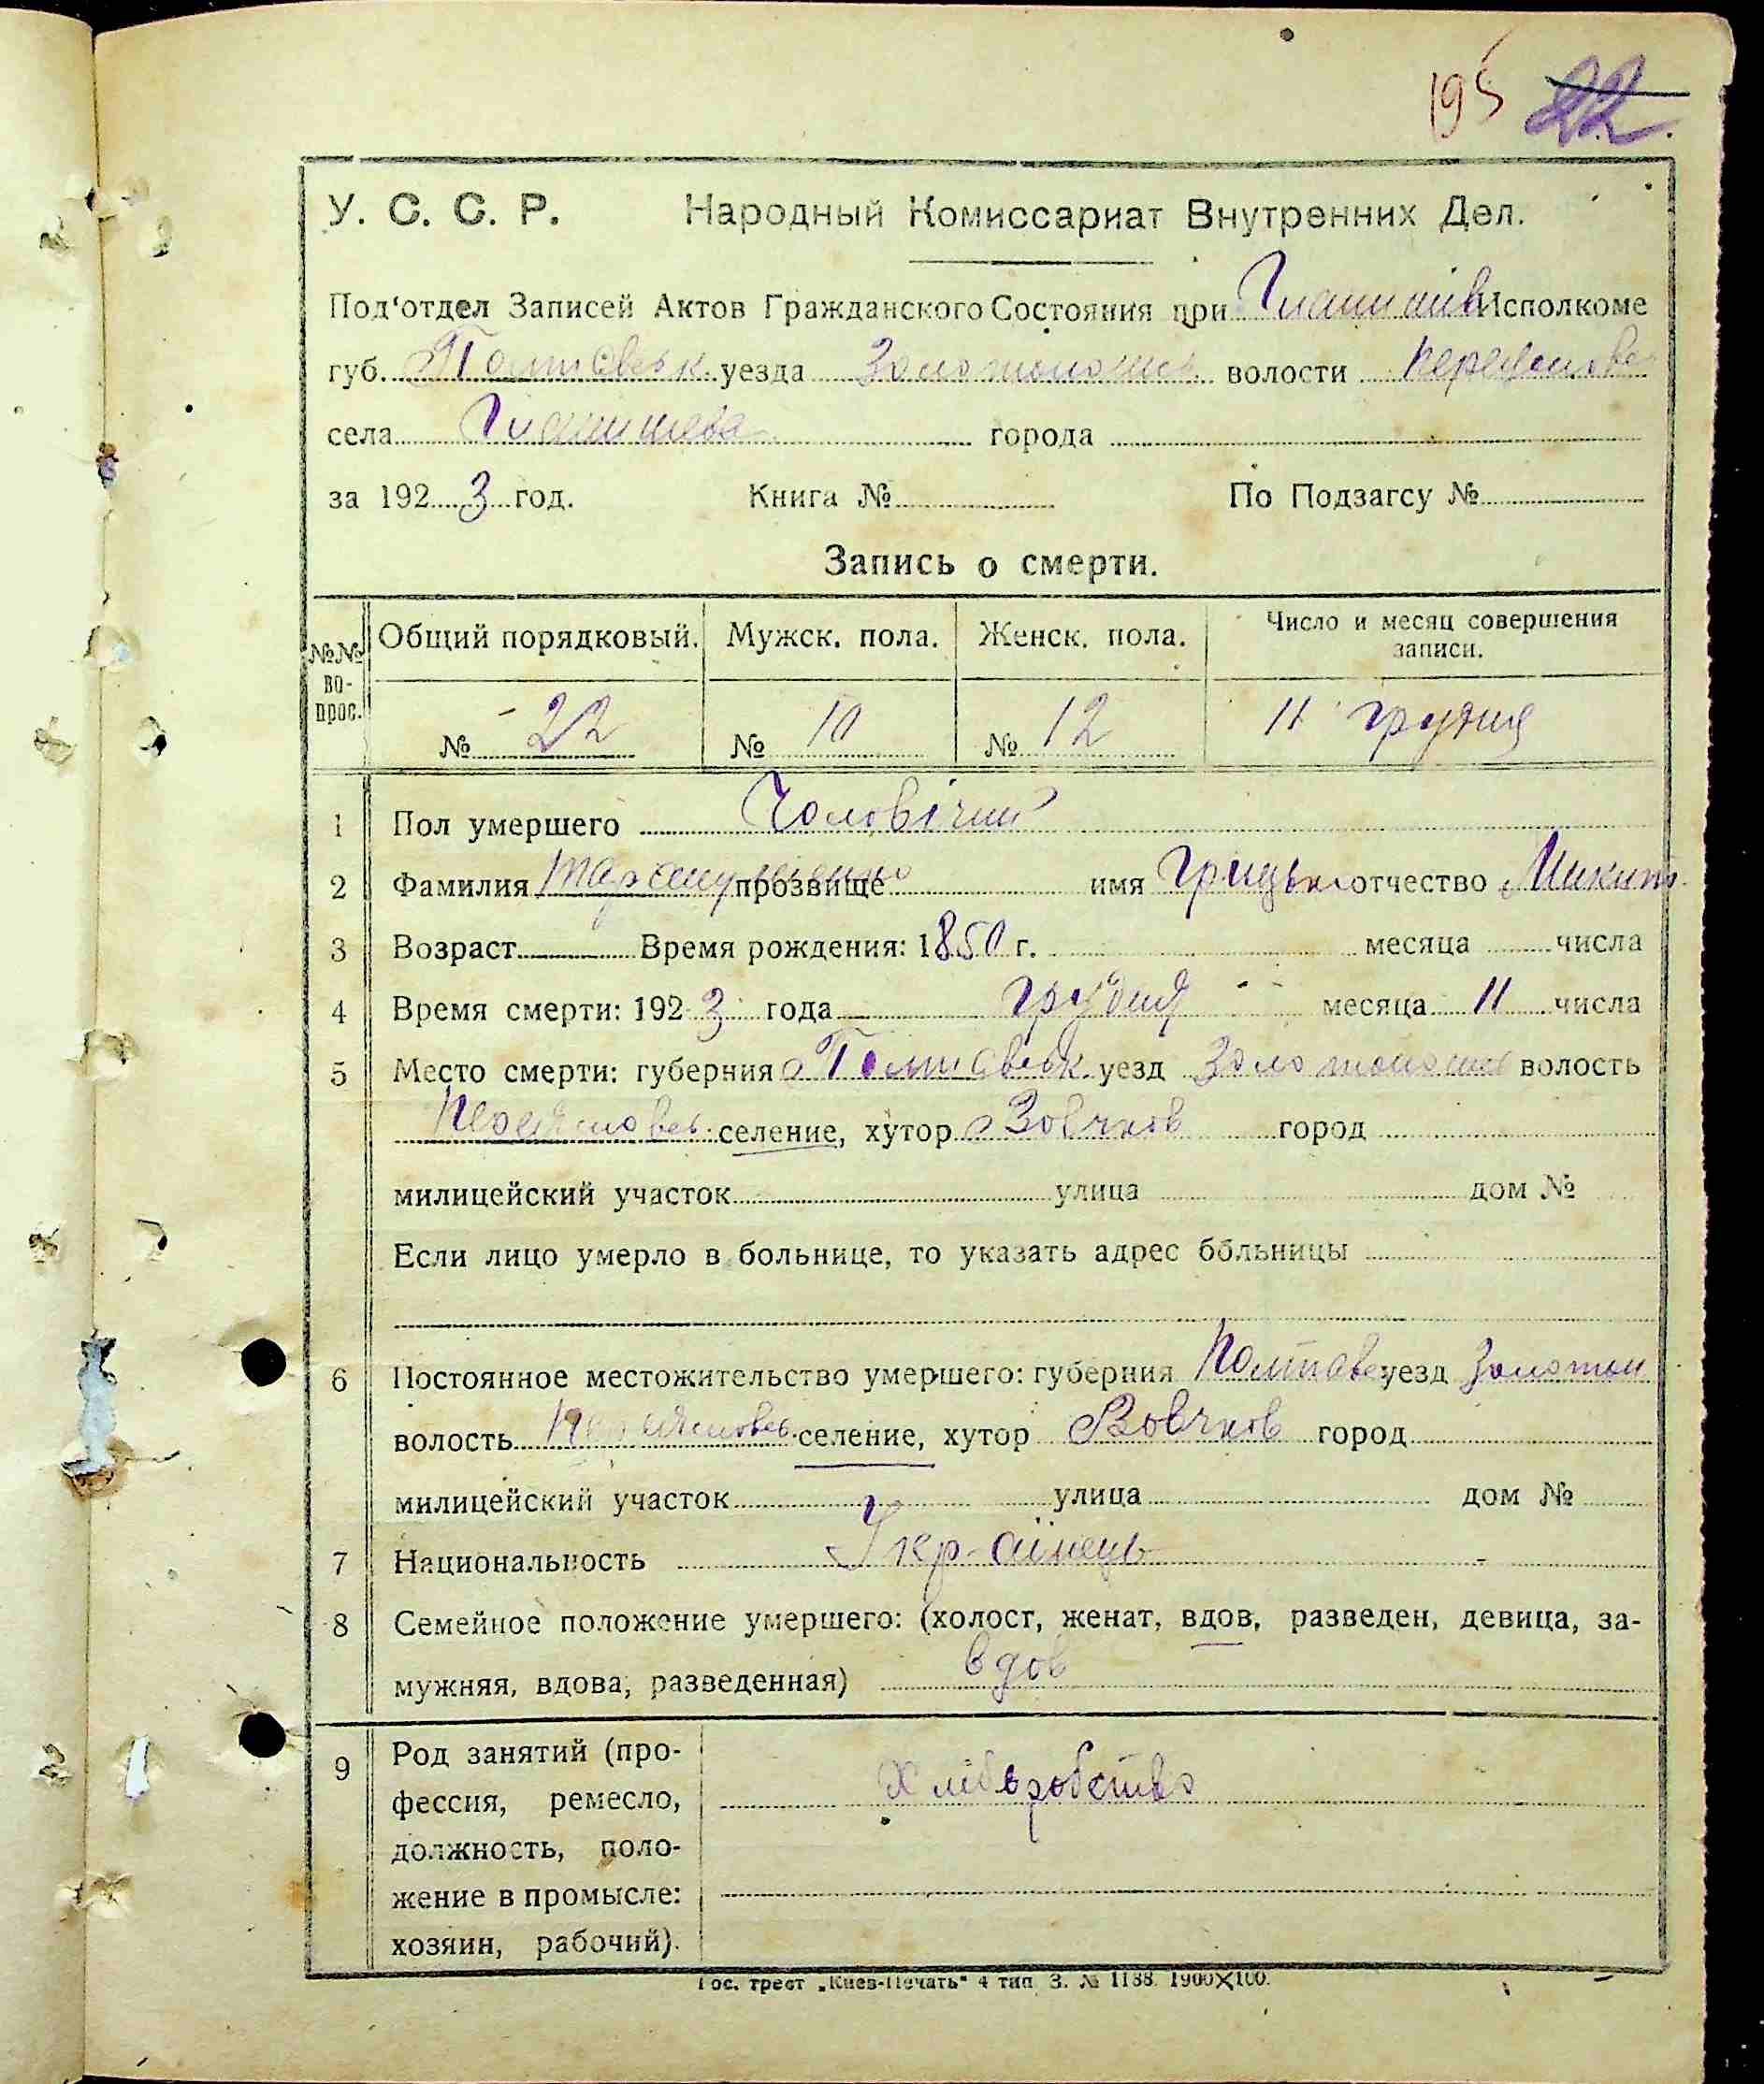 195 22
У. С. С. Р. Народный Комиссариат Внутренних Дел.
Под'отдел Записей Актов Гражданского Состояния при Гланишів Исполкоме
губ. Полтавськ. уезда Золотоношс волости
села Гланишева города
за 192 3 год. Книга № По Подзагсу №
Запись о смерти.
№№ во-прос. Общий порядковый. Мужск. пола. Женск. пола. Число и месяц совершения записи.
№ 22 № 10 № 12 11 грудня
1 Пол умершего Чоловічий
2 Фамилия прозвище имя Грицько отчество Микит
3 Возраст Время рождения: 1850 г. месяца числа
4 Время смерти: 192 3 года грудня месяца 11 числа
5 Место смерти: губерния Полтавськ уезд Золотонош волость
селение, хутор Вовчков город
милицейский участок улица дом №
Если лицо умерло в больнице, то указать адрес больницы
6 Постоянное местожительство умершего: губерния Полтавс уезд Золотон
волость селение, хутор Вовчков город
милицейский участок улица дом №
7 Национальность Укр-аїнець
8 Семейное положение умершего: (холост, женат, вдов, разведен, девица, за-
мужняя, вдова, разведенная) вдов
9 Род занятий (про-
фессия, ремесло, Хліборобство
должность, поло-
жение в промысле:
хозяин, рабочий).
Гос. трест „Киев-Печать" 4 тип. З. № 1188. 1900X100.